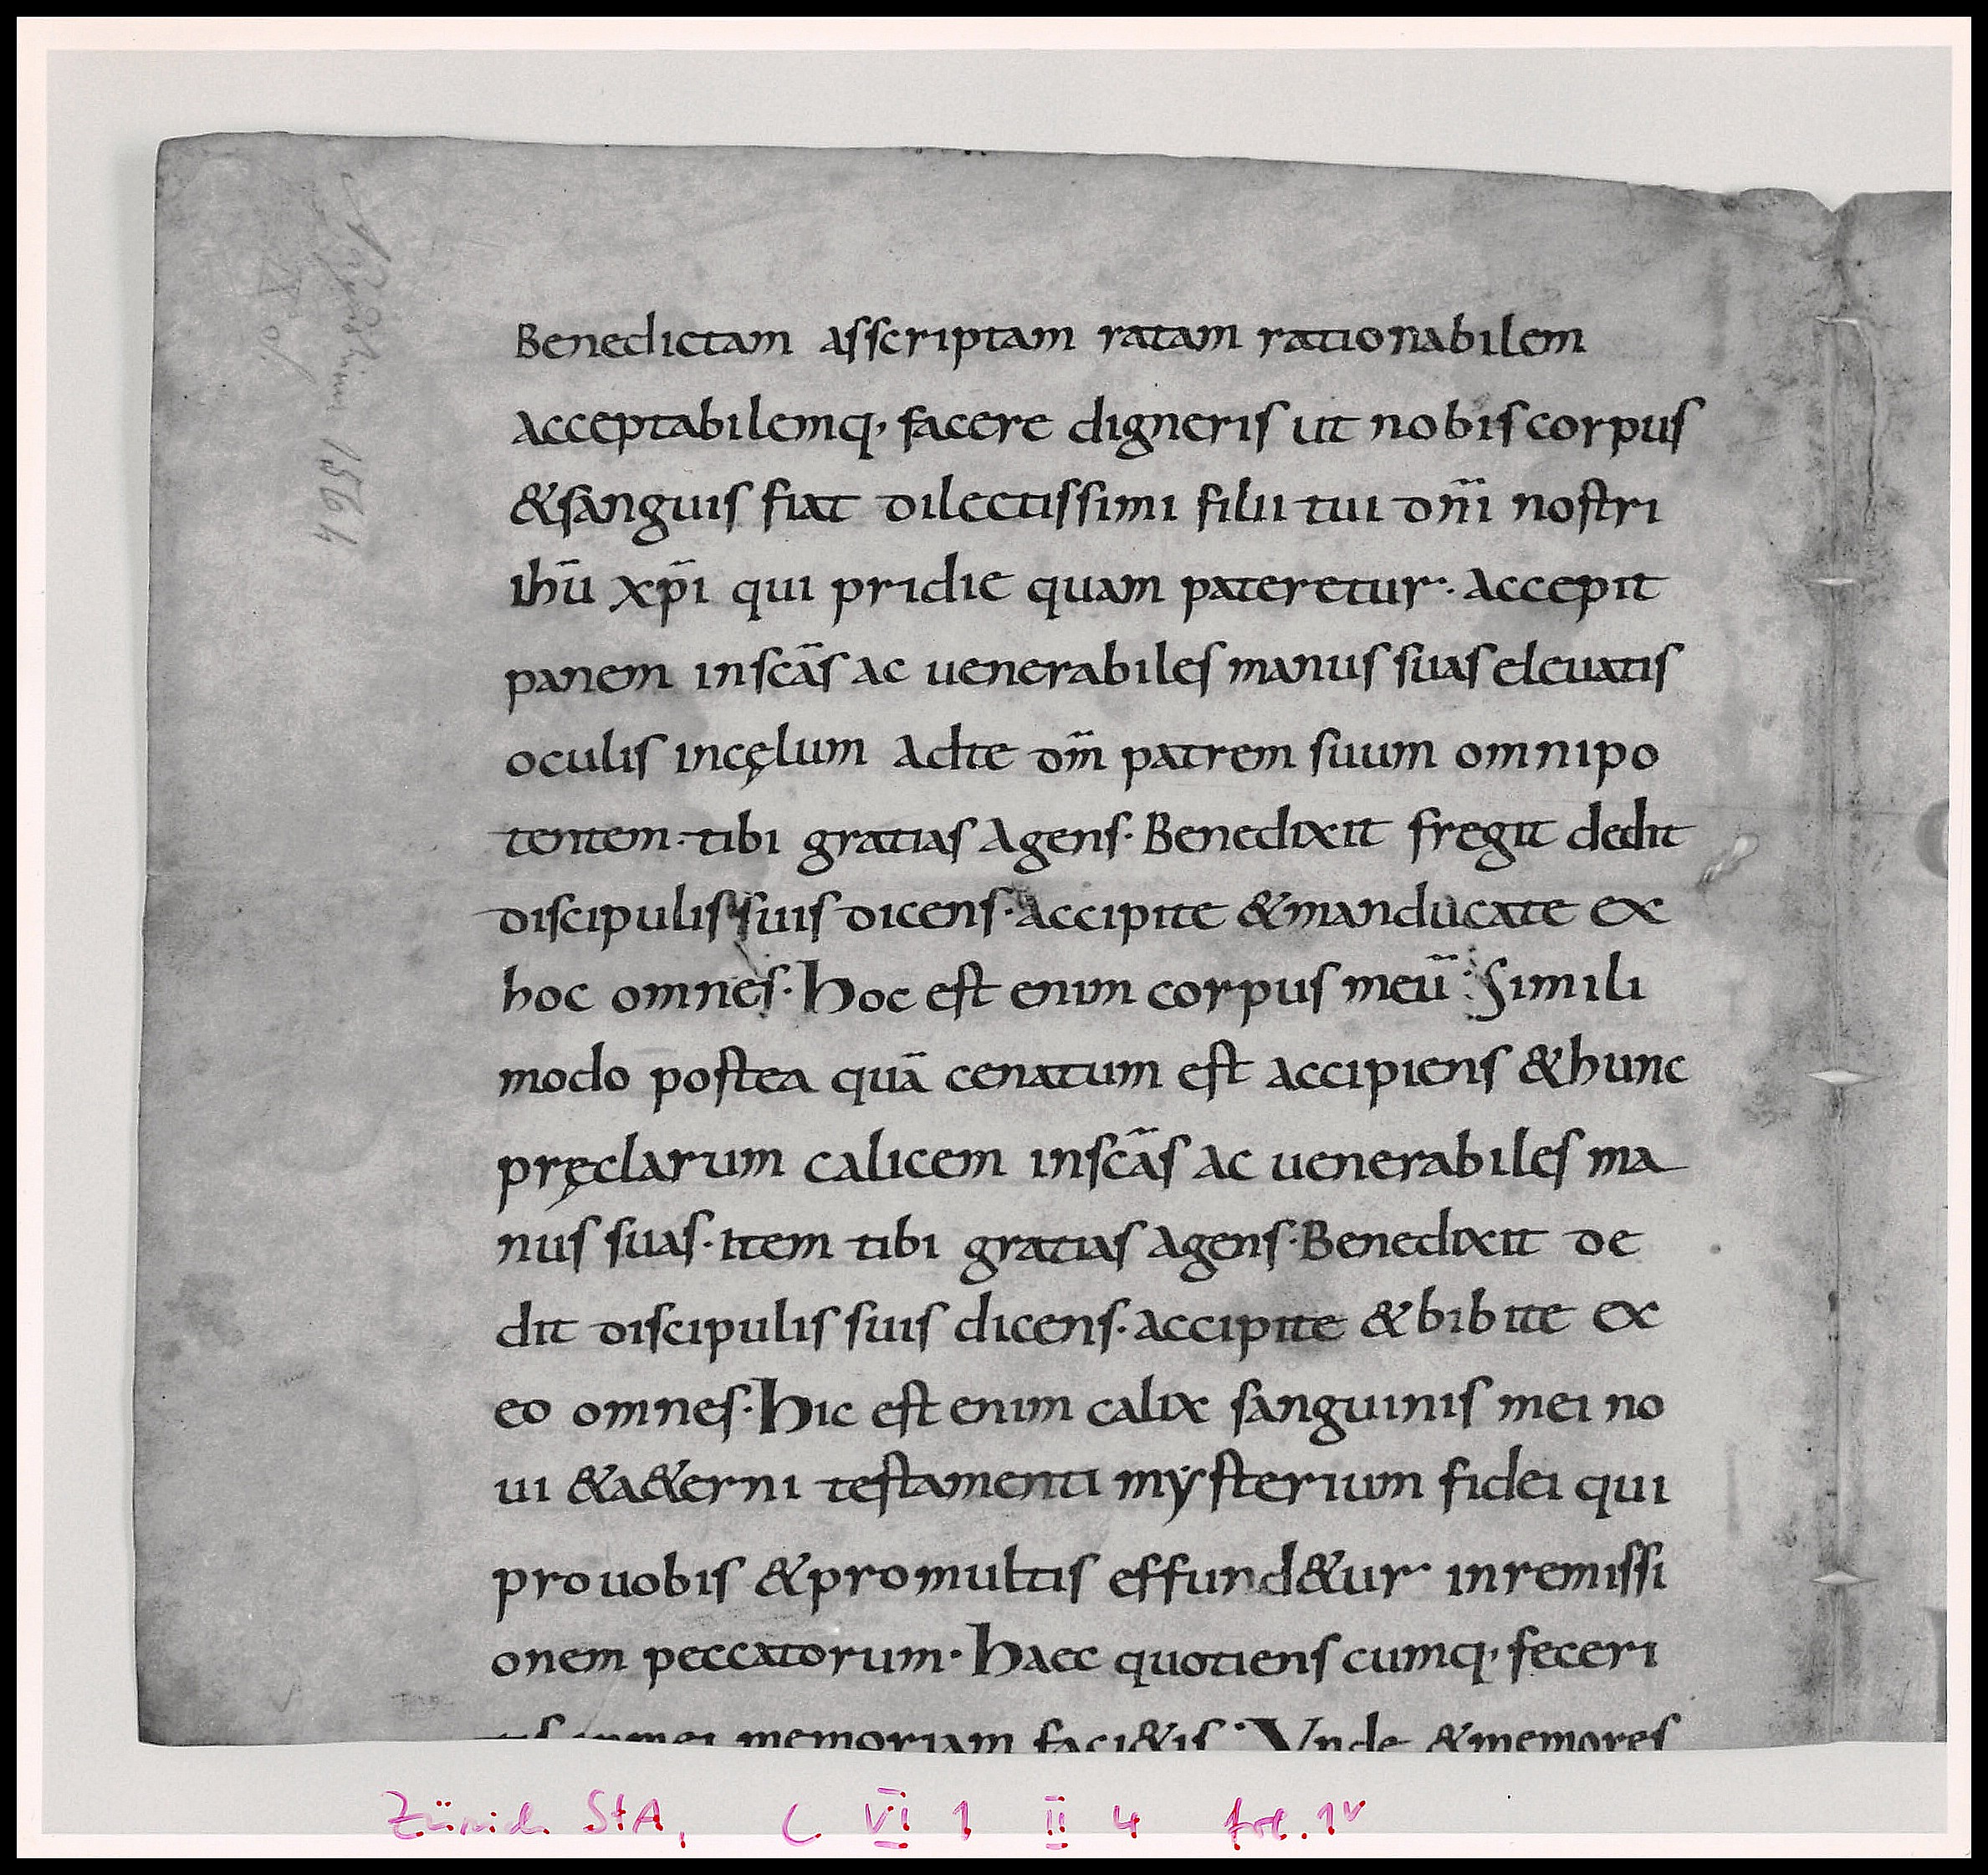 Benedictam asscriptam ratam rationabilem
acceptabilemq; facere digneris ut nobis corpus
&sanguis fiat dilectissimi filii tui dn̄i nostri
ihū xp̄i qui pridie quam pateretur· accepit
panem inscās ac uenerabiles manus suas eleuatis
oculis incęlum adte dm̄ patrem suum omnipo
tentem· tibi gratias agens· Benedixit fregit dedit
discipulis suis dicens· accipite &manducate ex
hoc omnes· hoc est enim corpus meū: Simili
modo postea quā cenatum est accipiens &hunc
pręclarum calicem inscās ac uenerabiles ma
nus suas· item tibi gratias agens· Benedixit de
dit discipulis suis dicens· accipite &bibite ex
eo omnes· hic est enim calix sanguinis mei no
ui &a&erni testamenti mẏsterium fidei qui
prouobis &promultis effund&ur inremissi
onem peccatorum· haec quotiens cumq; feceri
tis inmei memoriam faci&is· Vnde &memores
1564
Zürich StA, C VI 1 II 4 fol. 1v